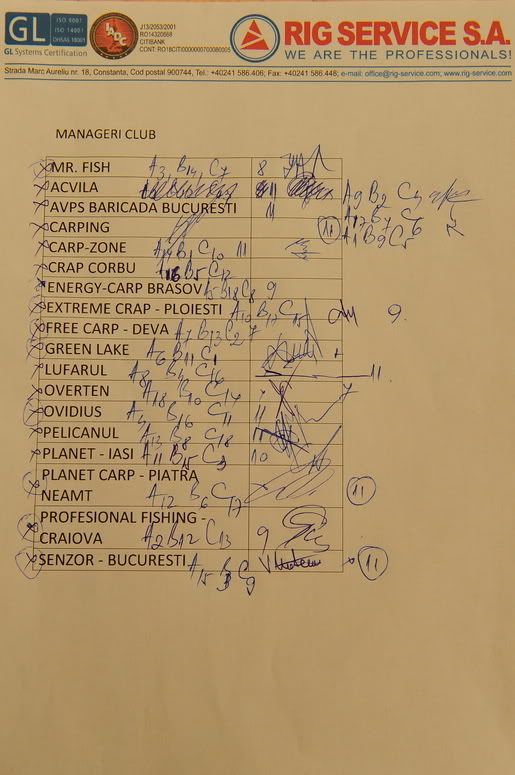 GL
ISO 9001
ISO 14001
OHSAS 18001
GL Systems Certification
IADC
J13/2053/2001
RO14320568
CITIBANK
RIG SERVICE S.A.
WE ARE THE PROFESSIONALS!
Strada Marc Aureliu nr. 18, Constanta, Cod postal 900744, Tel.: +40241 586.406; Fax: +40241 586.448; e-mail: office@rig-service.com; www.rig-service.com
MANAGERI CLUB
MR. FISH A3, B14, C7 8
ACVILA 11 A9 B2 C3
AVPS BARICADA BUCURESTI 11 A17 B7 C6
CARPING 11 A1 B9 C5
CARP-ZONE A14 B1 C10 11
CRAP CORBU A16 B5 C12
ENERGY-CARP BRASOV A5 B18 C8 9
EXTREME CRAP - PLOIESTI A10 B17 C15 9.
FREE CARP - DEVA A7 B13 C2 7
GREEN LAKE A6 B11 C1
LUFARUL A8 C16 11
OVERTEN A18 B10 C14 7
OVIDIUS A4 B16 C11 11
PELICANUL A13 B8 C18 11
PLANET - IASI A11 B15 10
PLANET CARP - PIATRA
NEAMT A12 B6 C17 11
PROFESIONAL FISHING -
CRAIOVA A2 B12 C13 9
SENZOR - BUCURESTI A15 B3 C9 11